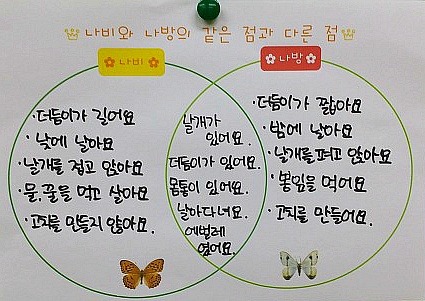 나비와 나방의 같은 점과 다른 점
나비
나방
·더듬이가 길어요
·낮에 날아요
·날개를 접고 앉아요
·물, 꿀을 먹고 살아요
·고치를 만들지 않아요.
날개가
있어요.
더듬이가 있어요.
몸통이 있어요.
날아다녀요.
애벌레
였어요.
·더듬이가 짧아요
·밤에 날아요
·날개를 펴고 앉아요
·을 먹어요
·고치를 만들어요.